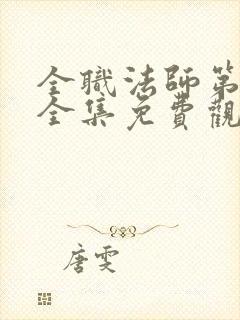 全職法師第
全集免費觀
唐雯